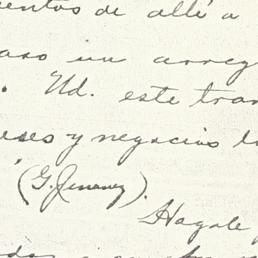 entos de allé a
aso un arreg
. Ud. este tran
eses y negocios l
(G. Jimenez).
Hagale